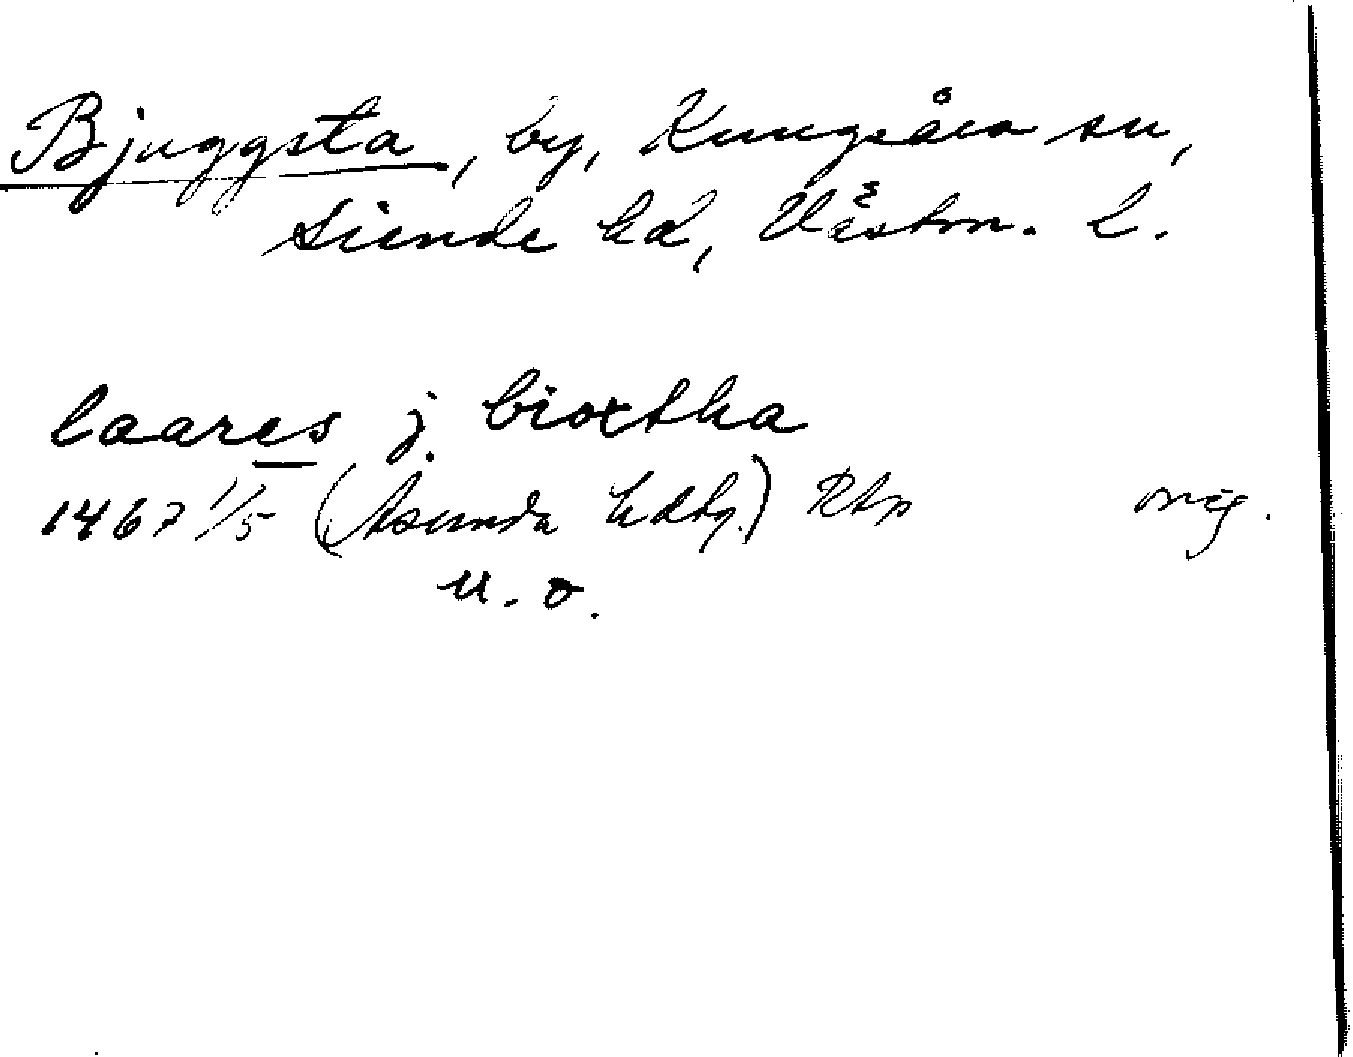 Bjuggsta, by, Kungsåra sn,
Siende hd, Västm. l.
laares j bioxtha
1467 1/5 (Åsunda hdtg.) Rtp orig.
U. o.